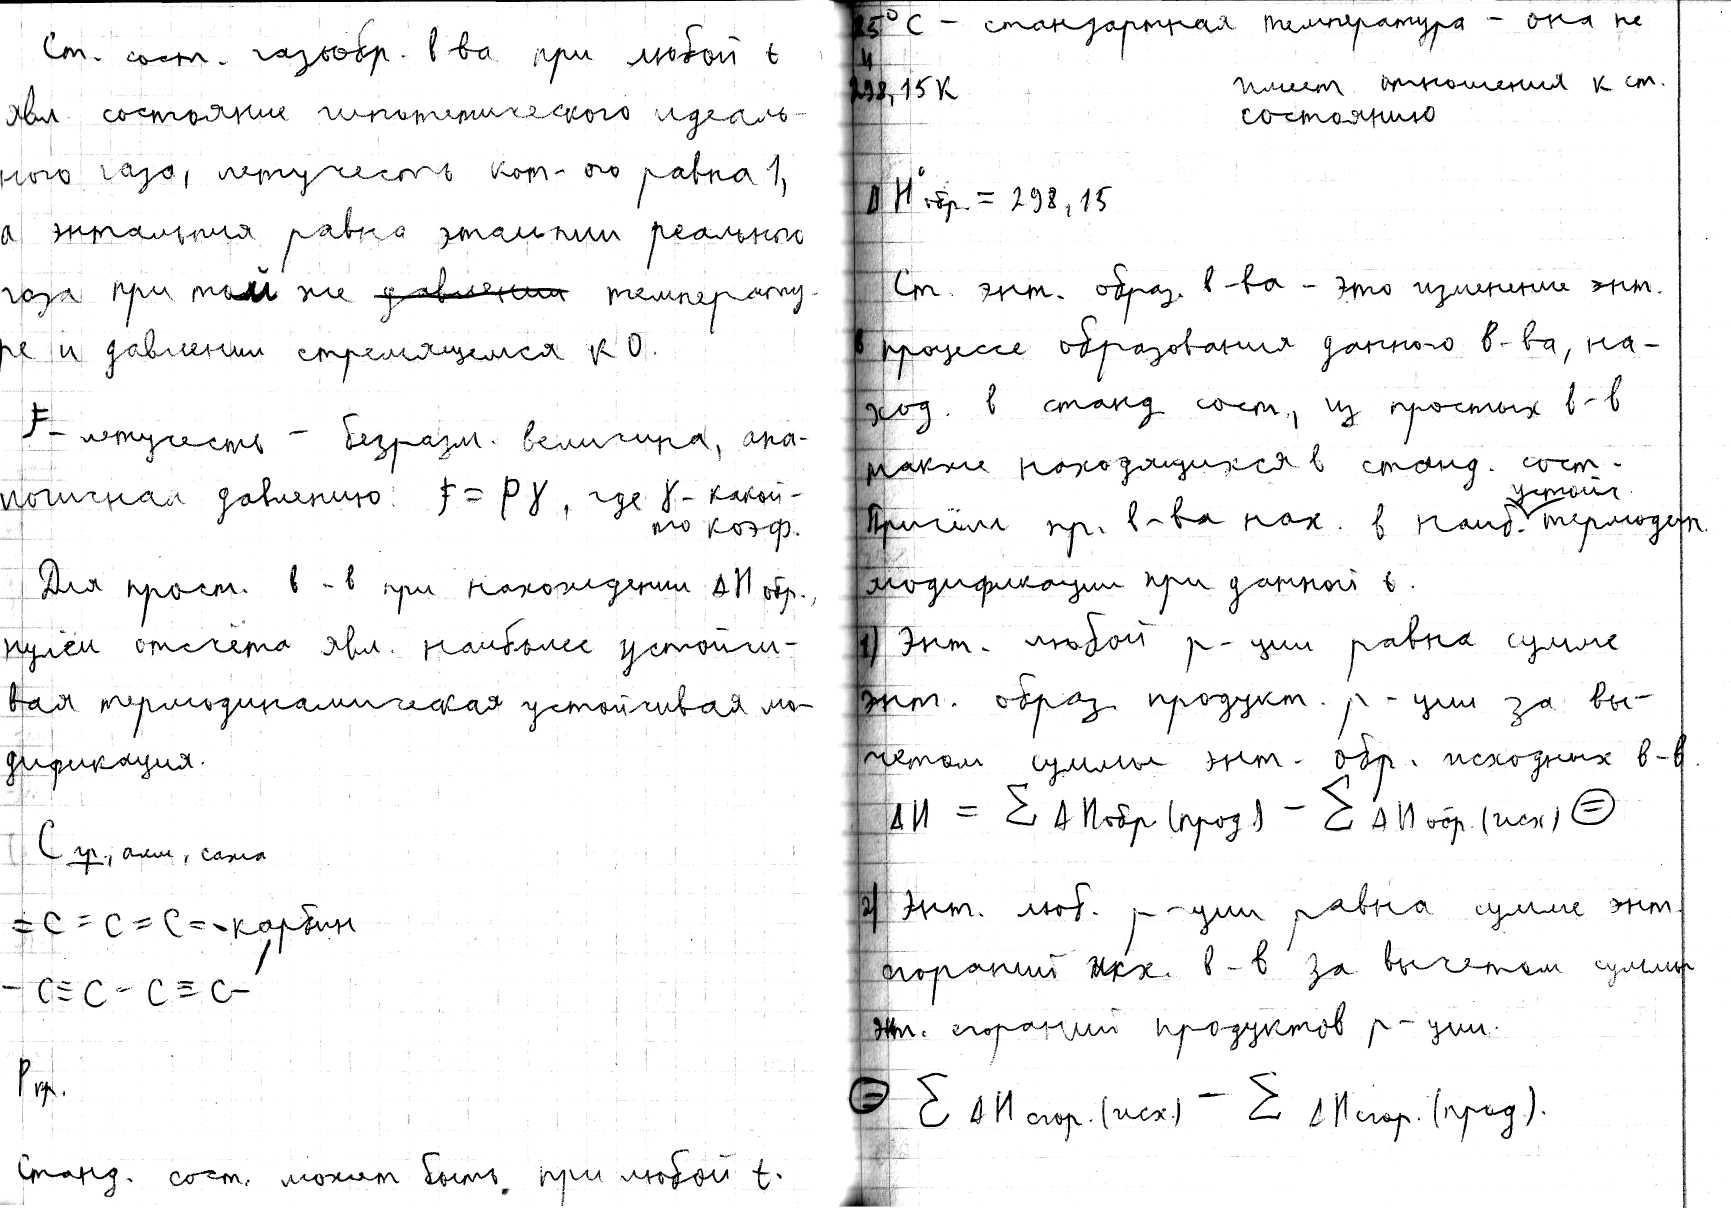 Ст. сост. газообр. в ва при любой t
явл. состояние гипотетического идеаль-
ного газа, летучесть кот-ого равна 1,
а энтальпия равна этальпии реального
газа при той же давлении температу-
ре и давлении стремящемся к 0.
F - летучесть - безразм. величина, ана-
логичная давлению: F = Pγ, где γ - какой-
то коэф.
Для прост. в-в при нахождении ΔH обр.,
нулём отсчёта явл. наиболее устойчи-
вая термодинамическая устойчивая мо-
дификация.
C гр., алм, сажа
=C=C=C=- карбин
-C≡C-C≡C-
P кр.
Станд. сост. может быть при любой t.
25°C - стандартная температура - она не
298,15 K имеет отношения к ст.
состоянию
ΔH°обр. = 298,15
Ст. энт. образ. в-ва - это изменение энт.
в процессе образования данного в-ва, на-
ход. в станд сост., из простых в-в
также находящихся в станд. сост.
устойч.
Причём пр. в-ва нах. в наиб. термодин.
модификации при данной t.
1) Энт. любой р-ции равна сумме
энт. образ. продукт. р-ции за вы-
четом суммы энт. обр. исходных в-в.
ΔH = Σ ΔH обр (прод.) - Σ ΔH обр. (исх) ⊜
2) Энт. люб. р-ции равна сумме энт.
сгораний исх. в-в за вычетом суммы
энт. сгораний продуктов р-ции.
⊜ Σ ΔH сгор. (исх.) - Σ ΔH сгор. (прод).